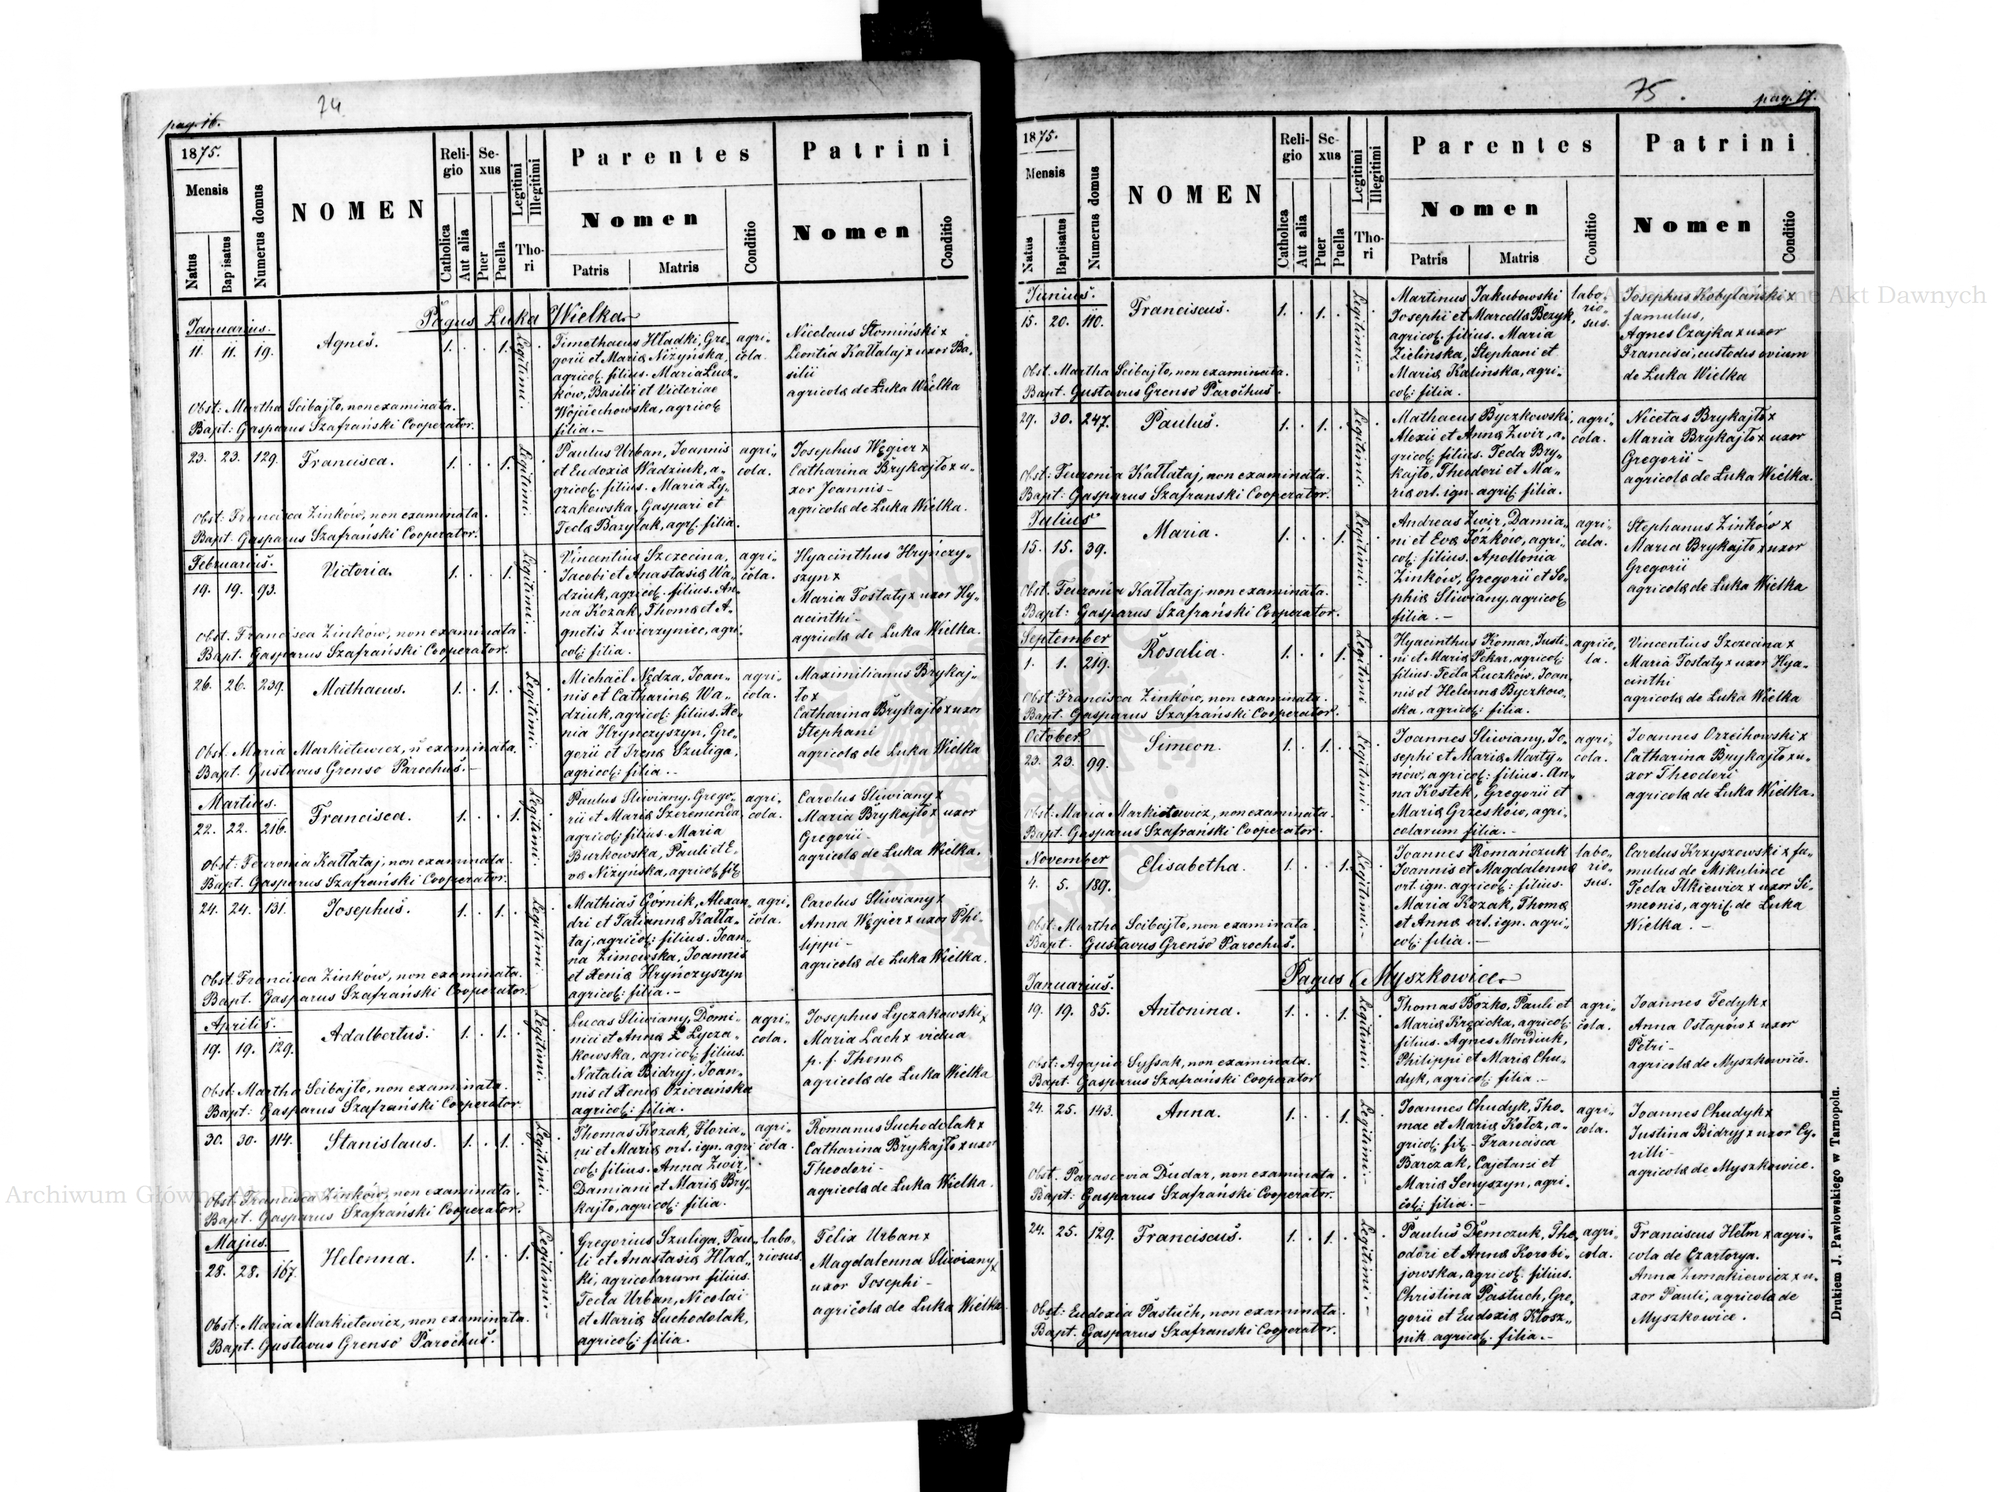 24
pag. 16.
1875.
Mensis
Natus
Bapisatus
Numerus domus
NOMEN
Religio
Catholica
Aut alia
Sexus
Puer
Puella
Legitimi
Illegitimi
Thori
Parentes
Nomen
Patris
Matris
Conditio
Patrini
Nomen
Conditio
Pagus Łuka Wielka
Januarius.
11. 11. 19. Agnes. 1. . . 1. Legitimi.
Timothaeus Hładki, Gre-
gorii et Maria Niżyńska,
agricol: filius. Maria Łucz-
ków, Basilii et Victoriae
Wojciechowska, agricol:
filia.—
agri-
cola.
Nicolaus Słomiński x
Leontia Kałłataj x uxor Ba-
silii
agricolæ de Łuka Wielka
Obst: Martha Scibajło, non examinata.
Bapt: Gasparus Szafrański Cooperator.
23. 23. 129. Francisca. 1. . . 1. Legitimi.
Paulus Urban, Joannis
et Eudoxia Wadziuk, a-
gricol: filius. Maria Ły-
czakowska, Gaspari et
Tecla Bazylak, agr: filia.
agri-
cola.
Josephus Węgier x
Catharina Brykajło x u-
xor Joannis—
agricolæ de Łuka Wielka.
Obst: Francisca Zinków, non examinata.
Bapt: Gasparus Szafrański Cooperator.
Februarius.
19. 19. 93. Victoria. 1. . . 1. Legitimi.
Vincentius Szczecina,
Jacobi et Anastasia Wa-
dziuk, agricol: filius. An-
na Kozak, Thomæ et A-
gnetis Zwierzyniec, agri-
col: filia.
agri-
cola.
Hyacinthus Hryńczy-
szyn x
Maria Tostaty x uxor Hy-
acinthi—
agricolæ de Łuka Wielka.
Obst: Francisca Zinków, non examinata
Bapt: Gasparus Szafrański Cooperator.
26. 26. 239. Mathaeus. 1. . 1. . Legitimi.
Michael Nędza, Joan-
nis et Catharina Wa-
dziuk, agricol: filius. Xe-
nia Hryńczyszyn, Gre-
gorii et Irena Szuliga,
agricol: filia.—
agri-
cola.
Maximilianus Brykaj-
ło x
Catharina Brykajło x uxor
Stephani
agricolæ de Łuka Wielka
Obst: Maria Markietewicz, n examinata.
Bapt: Gustavus Grenso Parochus.—
Martius.
22. 22. 216. Francisca. 1. . . 1. Legitimi.
Paulus Sliwiany, Grego-
rii et Maria Szeremenda,
agricol: filius. Maria
Burkowska, Pauli et E-
va Niżyńska, agricol: fil:
agri-
cola.
Carolus Sliwiany x
Maria Brykajło x uxor
Gregorii—
agricolæ de Łuka Wielka.
Obst: Feuronia Kałłataj, non examinata.
Bapt: Gasparus Szafrański Cooperator.
24. 24. 131. Josephus. 1. . 1. . Legitimi.
Mathias Górnik, Alexan-
dri et Tatianna Kałła-
taj, agricol: filius. Joan-
na Zimowska, Joannis
et Xenia Hryńczyszyn
agricol: filia.—
agri-
cola.
Carolus Sliwiany x
Anna Węgier x uxor Phi-
lippi—
agricolæ de Łuka Wielka.
Obst: Francisca Zinków, non examinata.
Bapt: Gasparus Szafrański Cooperator.
Aprilis.
19. 19. 129. Adalbertus. 1. . 1. . Legitimi.
Lucas Sliwiany, Domi-
nici et Anna Łycza-
kowska, agricol: filius.
Natalia Bidryj, Joan-
nis et Xenia Ozierańska
agricol: filia.
agri-
cola.
Josephus Łyczakowski x
Maria Lach x vidua
p. f. Thomæ
agricolæ de Łuka Wielka
Obst: Martha Scibajło, non examinata.
Bapt: Gasparus Szafrański Cooperator.
30. 30. 114. Stanislaus. 1. . 1. . Legitimi.
Thomas Kozak, Floria-
ni et Maria ort. ign. agri
col: filius. Anna Zwir,
Damiani et Maria Bry-
kajło, agricol: filia.
agri-
cola.
Romanus Suchodolak x
Catharina Brykajło x uxor
Theodori—
agricolæ de Łuka Wielka.
Obst: Francisca Zinków, non examinata.
Bapt: Gasparus Szafrański Cooperator.
Majus.
28. 28. 167. Helenna. 1. . . 1. Legitimi.—
Gregorius Szuliga, Pau-
li et Anastasia Hład-
ki, agricolarum filius.
Tecla Urban, Nicolai
et Maria Suchodolak,
agricol: filia.
labo-
riosus.
Felix Urban x
Magdalenna Sliwiany x
uxor Josephi—
agricolæ de Łuka Wielka.
Obst: Maria Markietewicz, non examinata.
Bapt: Gustavus Grenso Parochus.
75.
pag. 17.
1875.
Mensis
Natus
Baptisatus
Numerus domus
NOMEN
Religio
Catholica
Aut alia
Sexus
Puer
Puella
Legitimi
Illegitimi
Thori
Parentes
Nomen
Patris
Matris
Conditio
Patrini
Nomen
Conditio
Junius.
15. 20. 110. Franciscus. 1. . 1. . Legitimi.—
Martinus Jakubowski
Josephi et Marcella Bezyk,
agricol: filius. Maria
Zielinska, Stephani et
Maria Kalinska, agri-
col: filia.
labo-
rio-
sus.
Josephus Kobylański x
famulus,
Agnes Czajka x uxor
Francisci, custodis ovium
de Łuka Wielka
Obst: Martha Scibajło, non examinata.
Bapt: Gustavus Grenso Parochus.
29. 30. 247. Paulus. 1. . 1. . Legitimi.
Mathaeus Byczkowski,
Alexii et Anna Zwir, a-
gricol: filius. Tecla Bry-
kajło, Theodori et Ma-
ria ort. ign. agri: filia.
agri-
cola.
Nicetas Brykajło x
Maria Brykajło x uxor
Gregorii—
agricolæ de Łuka Wielka.
Obst: Feuronia Kałłataj, non examinata.
Bapt: Gasparus Szafranski Cooperator.
Julius
15. 15. 39. Maria. 1. . . 1. Legitimi.
Andreas Zwir, Damia-
ni et Eva Józków, agri-
col: filius. Apollonia
Zinków, Gregorii et So-
phia Sliwiany, agricol:
filia.—
agri-
cola.
Stephanus Zinków x
Maria Brykajło x uxor
Gregorii
agricolæ de Łuka Wielka
Obst: Feuronia Kałłataj non examinata.
Bapt: Gasparus Szafrański Cooperator.
September
1. 1. 219. Rosalia. 1. . . 1. Legitimi
Hyacinthus Komar, Justi-
ni et Maria Pekar, agricol:
filius. Tecla Łuczków, Joan-
nis et Helenna Byczkow-
ska, agricol: filia.
agrico-
la.
Vincentius Szczecina x
Maria Tostaty x uxor Hya-
cinthi
agricolæ de Łuka Wielka
Obst: Francisca Zinków, non examinata.
Bapt: Gasparus Szafrański Cooperator.
October.
23. 23. 99. Simeon. 1. . 1. . Legitimi.
Joannes Sliwiany, Jo-
sephi et Maria Marty-
nów, agricol: filius. An-
na Kostek, Gregorii et
Maria Grzesków, agri-
colarum filia.—
agri-
cola.
Joannes Orzeihowski x
Catharina Brykajło x u-
xor Theodori
agricolæ de Łuka Wielka.
Obst: Maria Markietewicz, non examinata.
Bapt: Gasparus Szafrański Cooperator.
November
4. 5. 189. Elisabetha. 1. . . 1. Legitimi.
Joannes Romańczuk
Joannis et Magdalenna
ort. ign. agricol: filius.
Maria Kozak, Thomæ
et Anna ort. ign. agri-
col: filia.—
labo-
rio-
sus.
Carolus Krzyszewski x fa-
mulus de Mikulince
Tecla Ilkiewicz x uxor Si-
meonis, agri: de Łuka
Wielka.—
Obst: Martha Scibajło, non examinata.
Bapt: Gustavus Grenso Parochus.
Pagus Myszkowice.
Januarius.
19. 19. 85. Antonina. 1. . . 1. Legitimi.
Thomas Bozko, Pauli et
Maria Kręcicka, agricol:
filius. Agnes Mendiuk,
Philippi et Maria Chu-
dyk, agricol: filia.—
agri-
cola.
Joannes Fedyk x
Anna Ostapów x uxor
Petri—
agricolæ de Myszkowice.
Obst: Agapia Sysak, non examinata.
Bapt: Gasparus Szafrański Cooperator
24. 25. 143. Anna. 1. . . 1. Legitimi.
Joannes Chudyk, Tho-
mae et Maria Kolcz, a-
gricol: fil:— Francisca
Barczak, Cajetani et
Maria Senyszyn, agri-
col: filia.—
agri-
cola.
Joannes Chudyk x
Justina Bidryj x uxor Cy-
rilli—
agricolæ de Myszkowice.
Obst: Parascevia Dudar, non examinata.
Bapt: Gasparus Szafrański Cooperator.
24. 25. 129. Franciscus. 1. . 1. . Legitimi.—
Paulus Demczuk, The-
odori et Anna Korobi-
jowska, agricol: filius.
Christina Pastuch, Gre-
gorii et Eudoxia Kłosz-
nik agricol: filia.—
agri-
cola.
Franciscus Helm x agri-
cola de Czartorya.
Anna Zimakiewicz x u-
xor Pauli, agricola de
Myszkowice.
Obst: Eudoxia Pastuch, non examinata.
Bapt: Gasparus Szafranski Cooperator.
Drukiem J. Pawłowskiego w Tarnopolu.
Archiwum Główne Akt Dawnych
Archiwum Główne Akt Dawnych